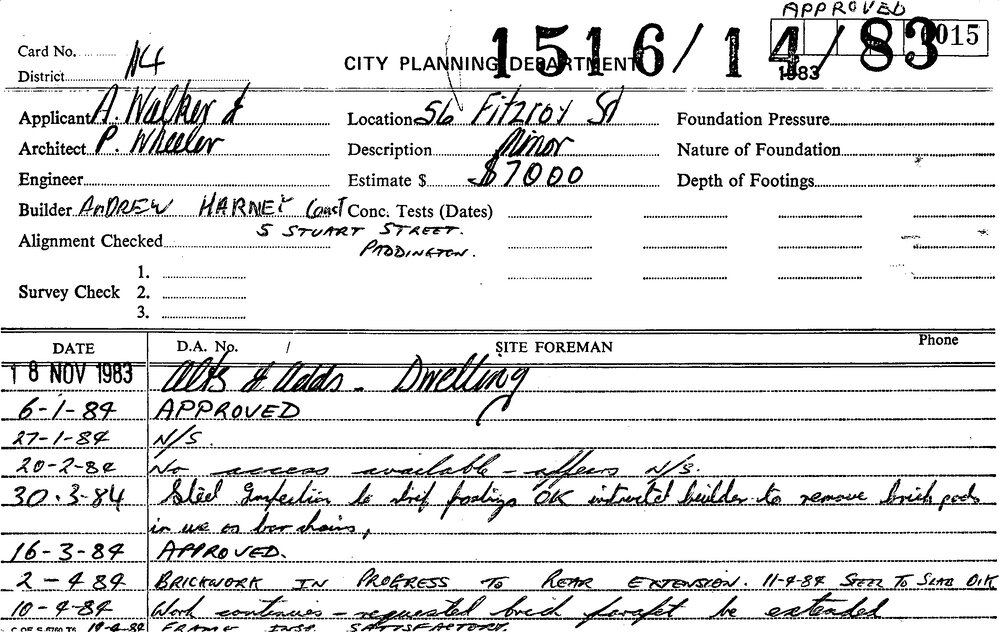 APPROVED
Card No.
0015
1516/14/83
CITY PLANNING DEPARTMENT
1983
District N4
Applicant A. Walker &
Location 56 Fitzroy St
Foundation Pressure
Architect P. Wheeler
Description Minor
Nature of Foundation
Engineer
Estimate $ $7000
Depth of Footings
Builder ANDREW HARNEY Const
Conc. Tests (Dates)
5 STUART STREET.
Alignment Checked
PADDINGTON.
1.
Survey Check 2.
3.
DATE D.A. No. / SITE FOREMAN Phone
18 NOV 1983 Alts & Adds - Dwelling
6-1-84 APPROVED
27-1-84 N/S.
20-2-84 No access available - appears N/S.
30.3-84 Steel Inspection to strip footings OK instructed builder to remove brick pads
in use as bar chairs,
16-3-84 APPROVED.
2-4 84 BRICKWORK IN PROGRESS TO REAR EXTENSION. 11-4-84 STEEL TO SLAB O/K
10-4-84 Work continues - requested brick parapet be extended
19-4-84 FRAME INSP. SATISFACTORY.